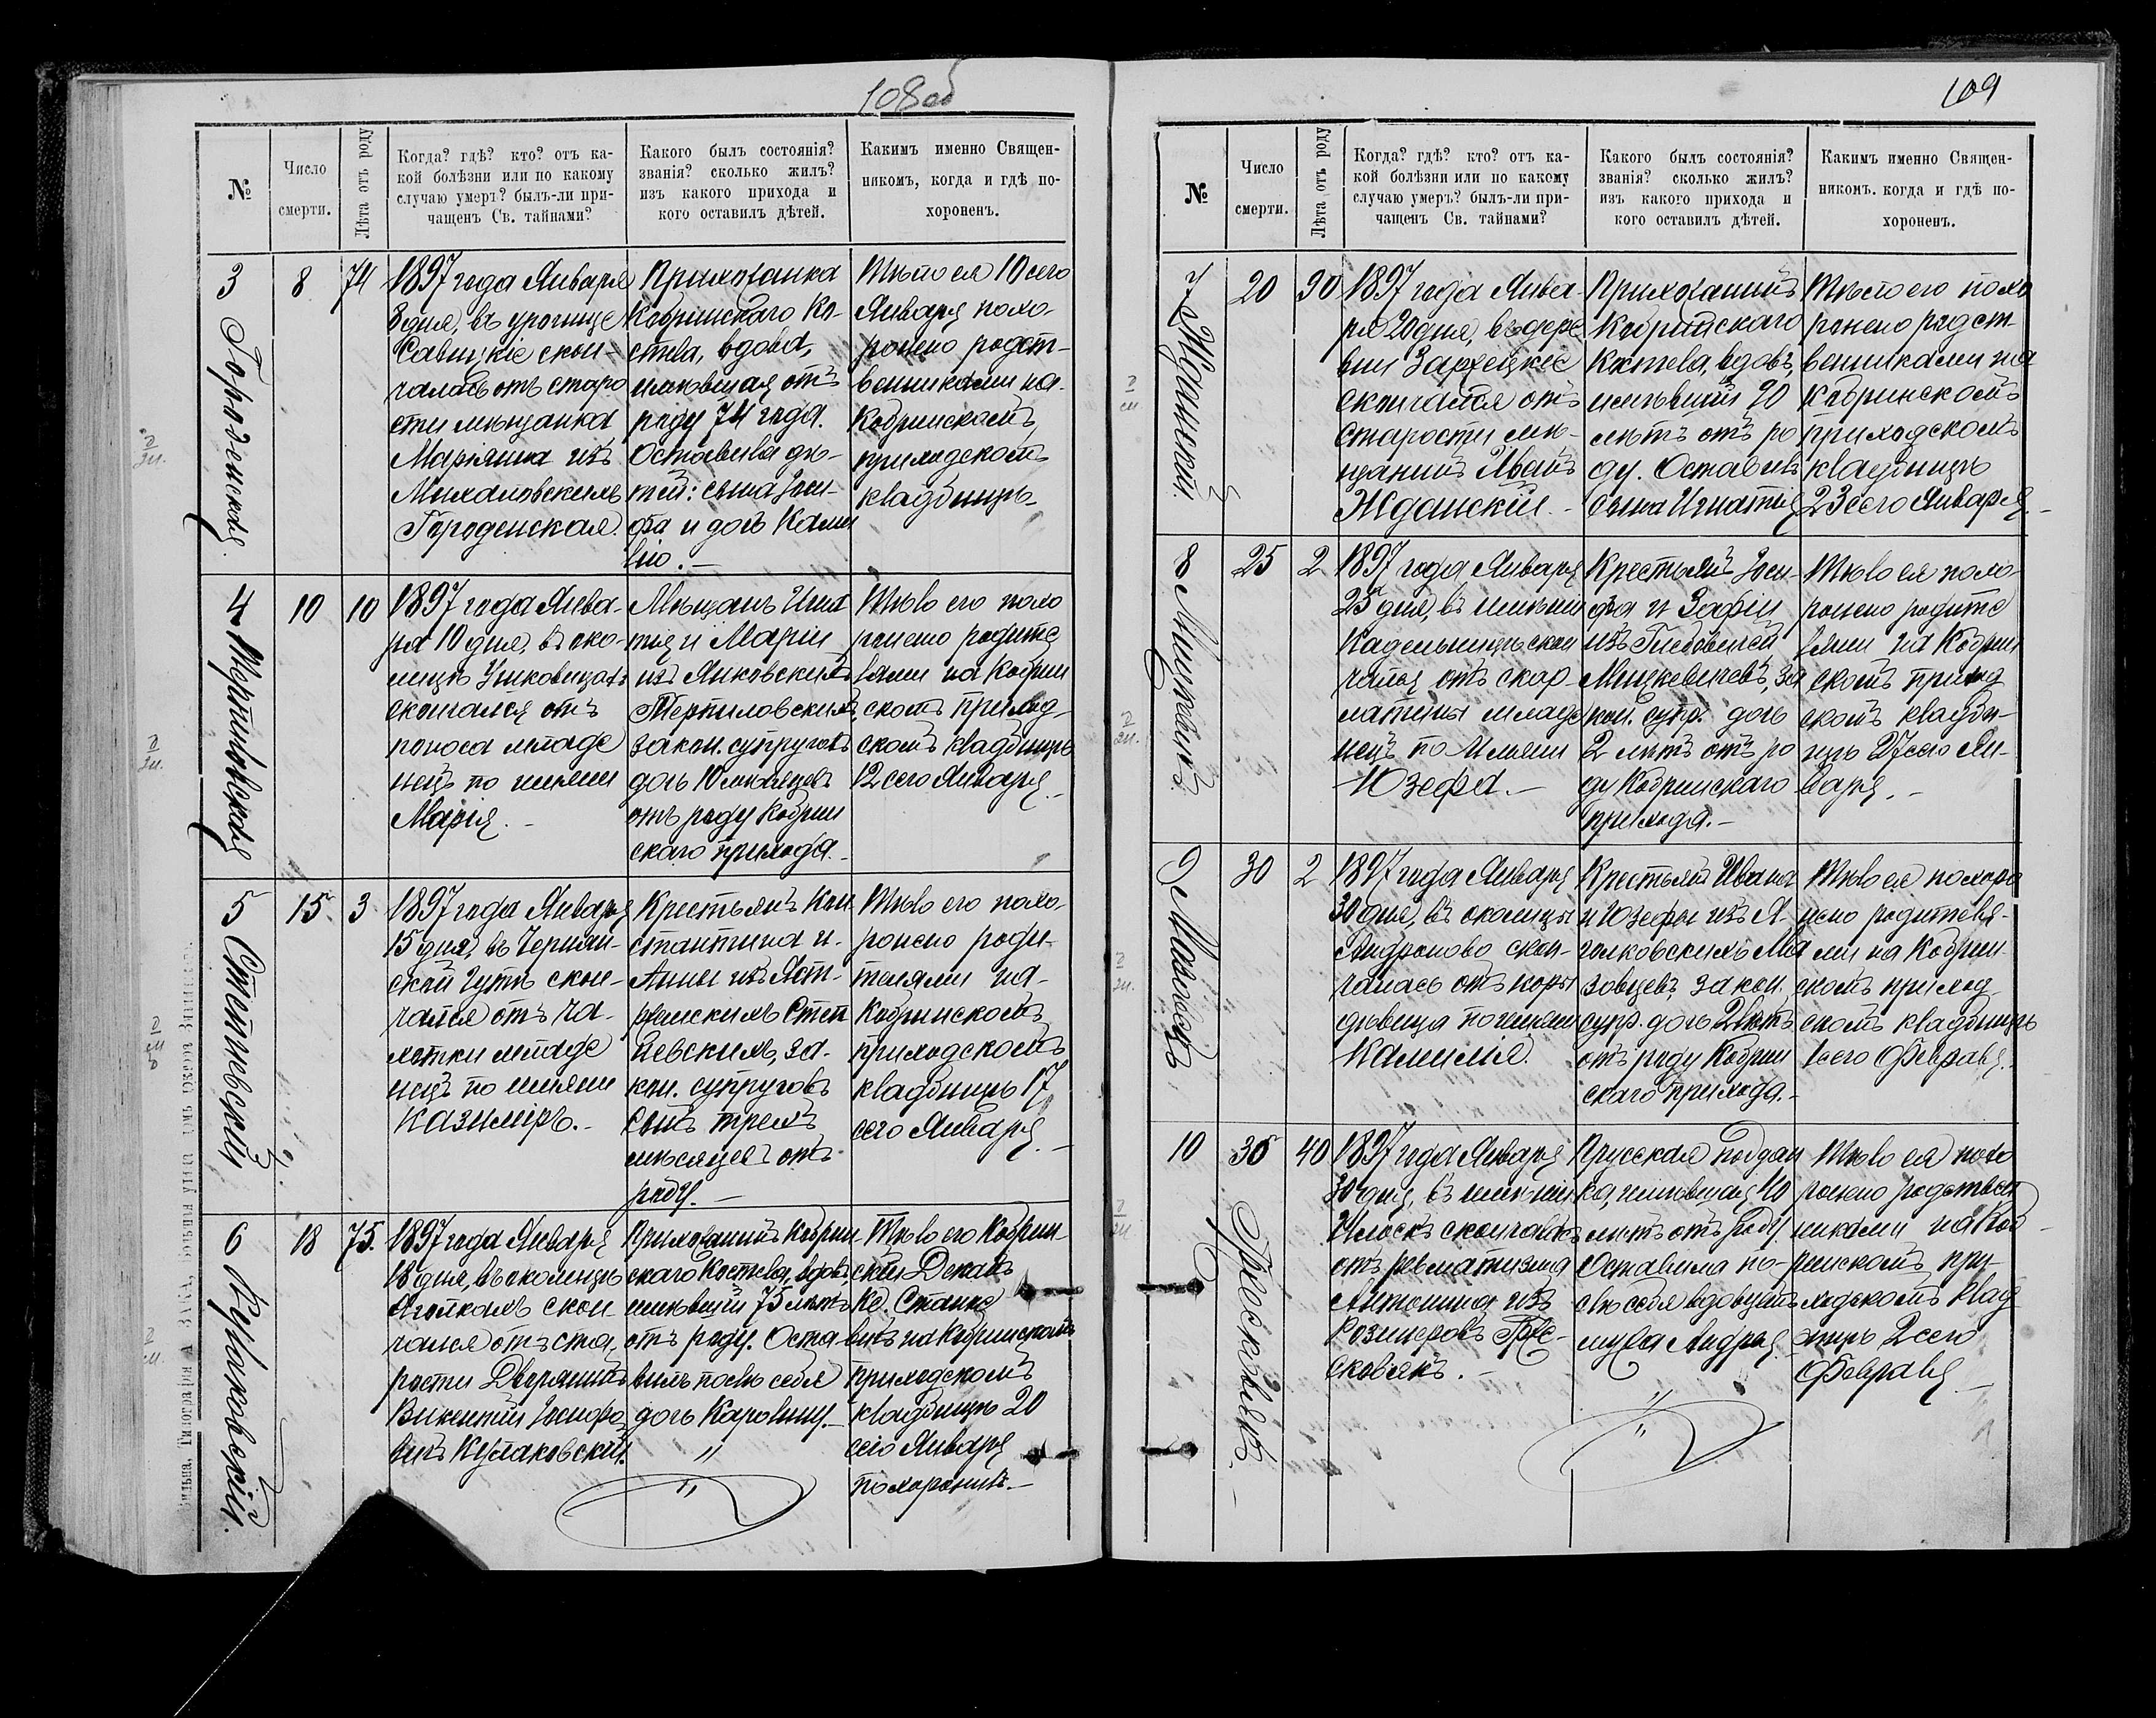 108 об
№
Число
смерти.
Лѣта отъ роду
Когда? гдѣ? кто? отъ ка-
кой болѣзни или по какому
случаю умеръ? былъ-ли при-
чащенъ Св. тайнами?
Какого былъ состоянія?
званія? сколько жилъ?
изъ какого прихода и
кого оставилъ дѣтей.
Какимъ именно Священ-
никомъ, когда и гдѣ по-
хороненъ.
3
8
74
1897 года Января
8 дня, въ урочище
Савицкіе скон-
чалась отъ старо
сти мѣщанка
Маріянна изъ
Михаловскихъ
Городенская.
Прихожанка
Кобринскаго Ко-
стела, вдова,
имѣвшая отъ
роду 74 года.
Оставила дѣ-
тей: сына Іоси-
фа и дочь Ками
лю.
Тѣло ея 10 сего
Января похо-
ронено родст-
венниками на
Кобринскомъ
приходскомъ
кладбищѣ
4
Терпиловская
10
10
1897 года Янва-
ря 10 дня, въ око-
лицѣ
скончался отъ
поноса младе
нецъ по имени
Марія.
Мѣщанъ Игна
тія и Маріи
изъ Янковскихъ
Терпиловскихъ,
закон. супруговъ
дочь 10 мѣсяцевъ
отъ роду Кобрин
скаго прихода.
Тѣло его похо
ронено родите
лями на Кобрин
скомъ приход-
скомъ кладбищѣ
12 сего Января.
5
15
3
1897 года Января
15 дня, въ Чернян-
ской скон-
чался отъ ча-
хотки младе
нецъ по имени
Казиміръ.
Крестьянъ Кон
стантина и
Анны изъ
закон. супруговъ
сынъ трехъ
мѣсяцевъ отъ
роду.
Тѣло его похо-
ронено роди-
телями на
Кобринскомъ
приходскомъ
кладбищѣ 17
сего Января.
6
Кулаковскій.
18
75.
1897 года Января
18 дня, въ околицѣ
Яголкахъ скон
чался отъ ста-
рости Дворянинъ
Викентій Іосифо
вичъ Кулаковскій.
Прихожанинъ Кобрин
скаго Костела, вдовъ,
имѣвшій 75 лѣтъ
отъ роду. Оста
вилъ послѣ себя
дочь Каролину.
Тѣло его Кобрин-
скій Деканъ
Кс.
на Кобринскомъ
приходскомъ
кладбищѣ 20
сего Января
похоронилъ.
109
№
Число
смерти.
Лѣта отъ роду
Когда? гдѣ? кто? отъ ка-
кой болѣзни или по какому
случаю умеръ? былъ-ли при-
чащенъ Св. тайнами?
Какого былъ состоянія?
званія? сколько жилъ?
изъ какого прихода и
кого оставилъ дѣтей.
Какимъ именно Священ-
никомъ. когда и гдѣ по-
хороненъ.
7
Жданскій.
20
90
1897 года Янва-
ря 20 дня, въ дере
вни Зарѣцкіе
скончался отъ
старости мѣ-
щанинъ Иванъ
Жданскій.
Прихожанинъ
Кобринскаго
Костела, вдовъ,
имѣвшій 90
лѣтъ отъ ро
ду. Оставилъ
сына Игнатія
Тѣло его похо
ронено родст-
венниками на
Кобринскомъ
приходскомъ
кладбищѣ
23 сего Января.
8
25
2
1897 года Января
25 дня, въ имѣніи
скон
чался отъ скар-
латины младе
нецъ по имени
Юзефа.
Крестьянъ Іоси-
фа и Зофіи
изъ
Мицкевичевъ, за
кон. супр. дочь
2 лѣтъ отъ ро
ду Кобринскаго
прихода.
Тѣло ея похо-
ронено родите
лями на Кобрин
скомъ приход
скомъ кладби-
щѣ 27 сего Ян-
варя.
9
30
2
1897 года Января
30 дня, въ околицы
Андроново скон-
чалась отъ коры
дѣвица по имени
Камилія.
Крестьянъ Ивана
и Юзефы изъ Я-
голковскихъ Ма
зовцевъ, закон.
супр. дочь 2 лѣтъ
отъ роду Кобрин
скаго прихода.
Тѣло ея похоро
нено родителя-
ми на Кобрин-
скомъ приход
скомъ кладбищѣ
1 сего Февраля.
10
30
40
1897 года Января
30 дня, въ имѣніи
Илоскъ скончалась
отъ ревматизма
Антонина изъ
Розинеровъ Грес-
ковякъ.
Прусская поддан
ка, имѣвшая 40
лѣтъ отъ роду.
Оставила по-
слѣ себя вдовцемъ
мужа Андрея.
Тѣло ея похо
ронено родствен
никами на Коб-
ринскомъ при-
ходскомъ клад
бищѣ 2 сего
Февраля.